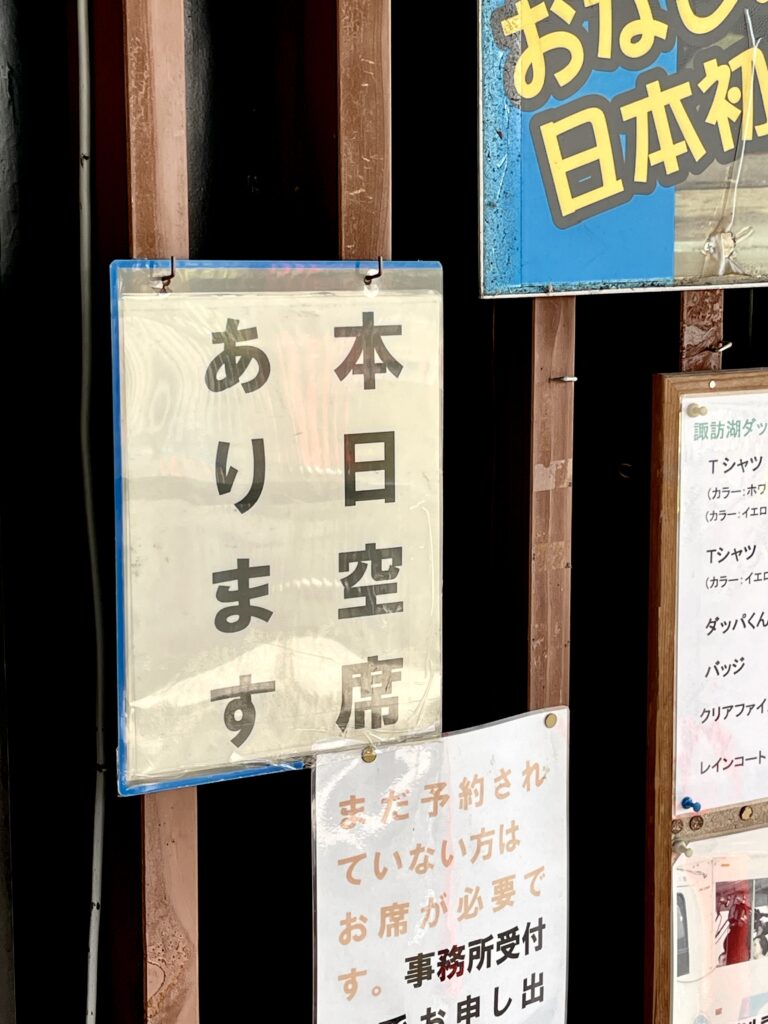 おなじ
日本初
本日空席
あります
まだ予約され
ていない方は
お席が必要で
す。事務所受付
お申し出
諏訪湖ダッ
Tシャツ
(カラー:ホワ
(カラー:イエロ
Tシャツ
(カラー:イエロ
ダッパくん
バッジ
クリアファイ
レインコート